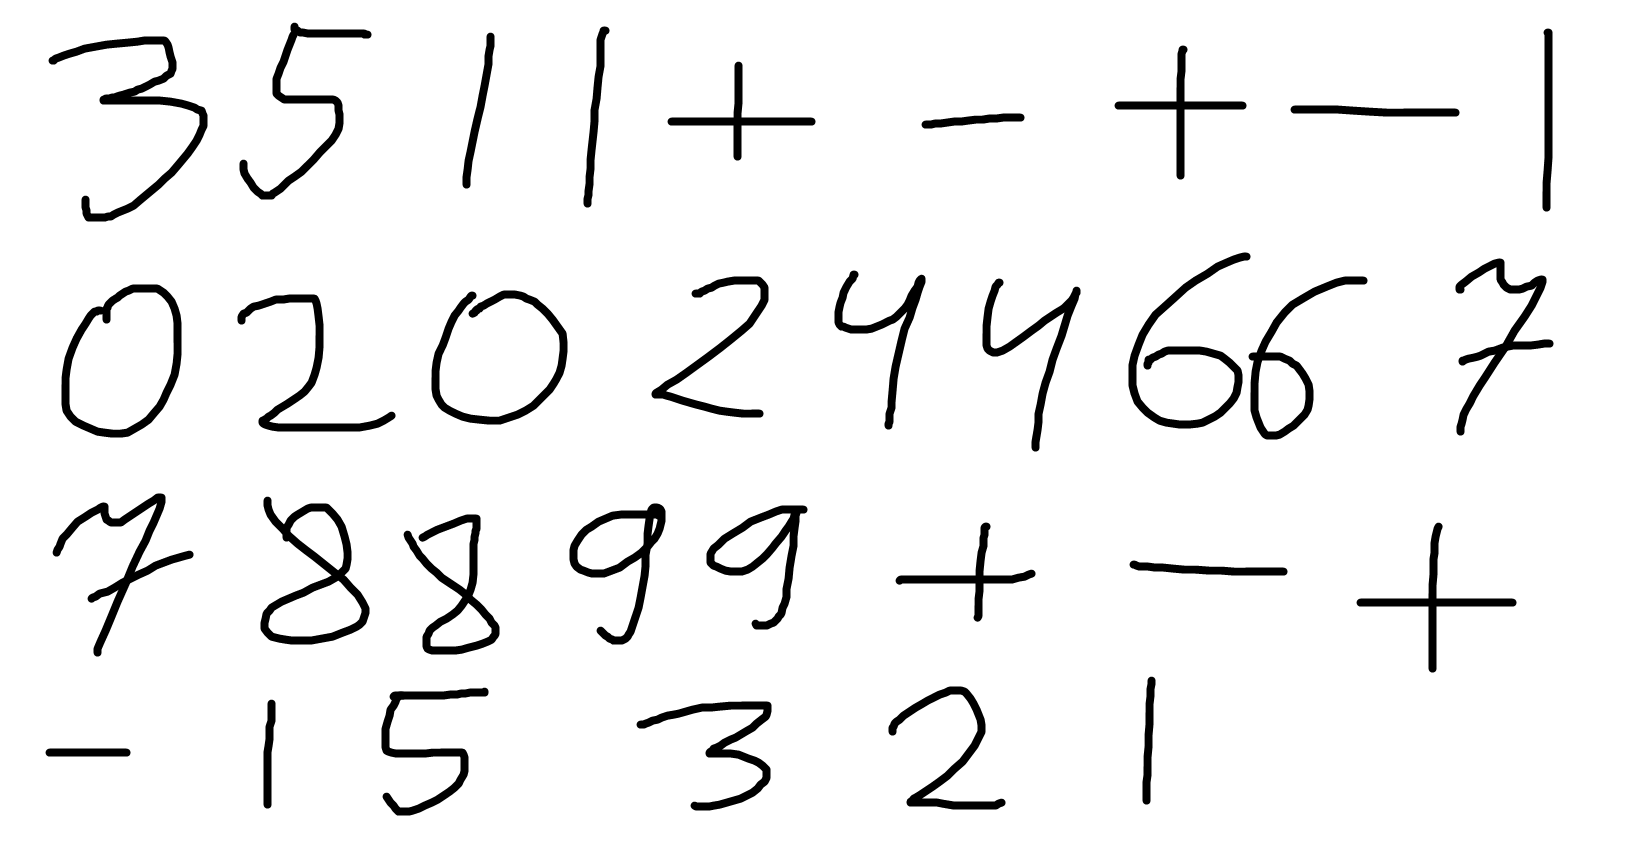 3 5 1 1 + - + - 1
0 2 0 2 4 4 6 6 7
7 8 8 9 9 + - +
- 1 5 3 2 1